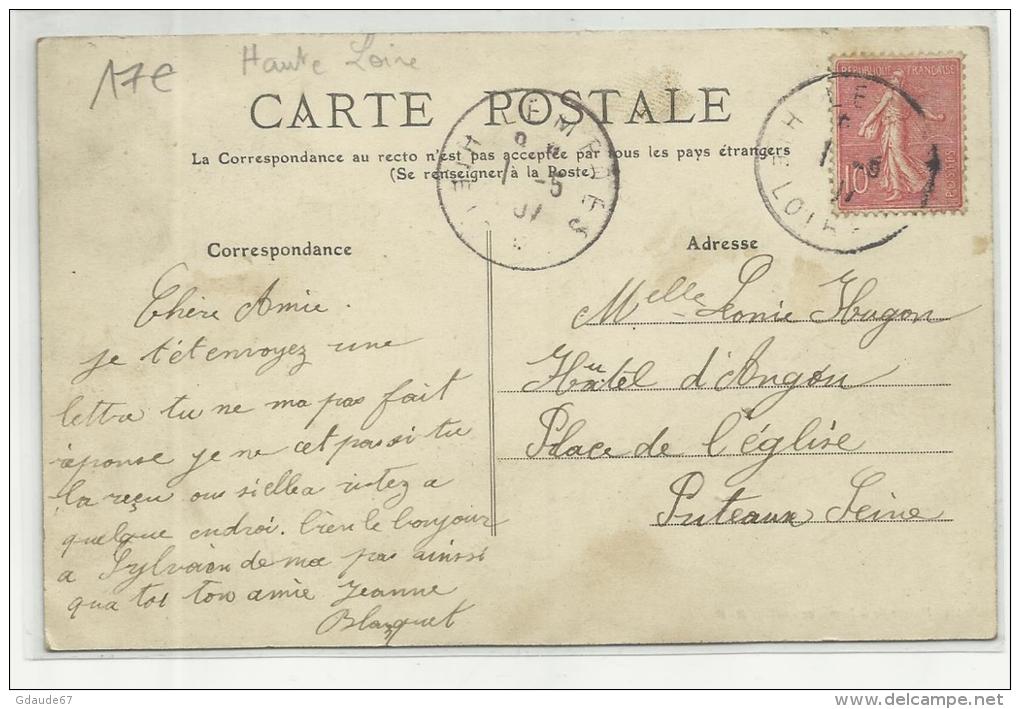 17e
Haute Loire
CARTE POSTALE
La Correspondance au recto n'est pas acceptée par tous les pays étrangers
(Se renseigner à la Poste)
LEMPDES
-5
07
REPUBLIQUE FRANÇAISE
10
POSTES
Correspondance
Adresse
Chère Amie.
je t'ét envoyez une
lettre tu ne ma pas fait
réponse je ne cet pas si tu
la reçu ou si ellea
quelque endroi. bien le bonjour
a Sylvain de ma pas ainssi
qua toi ton amie Jeanne
Blanquet
Melle Leonie Hugon
Hôtel d'Anjou
Place de l'église
Puteaux Seine
Gdaude67